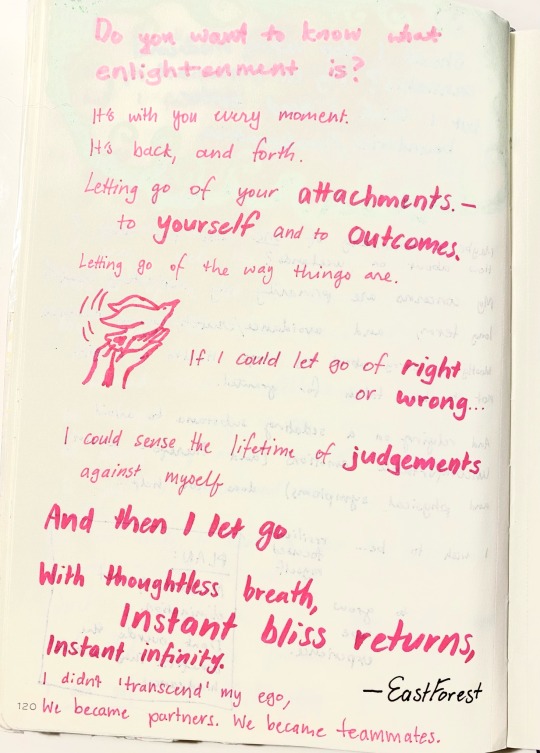 Do you want to know what
enlightenment is?
It's with you every moment.
It's back, and forth.
Letting go of your attachments. –
to yourself and to outcomes.
Letting go of the way things are.
If I could let go of right
or wrong...
I could sense the lifetime of judgements
against myself
And then I let go
With thoughtless breath,
Instant bliss returns,
Instant infinity.
— EastForest
I didn't 'transcend' my ego,
We became partners. We became teammates.
120